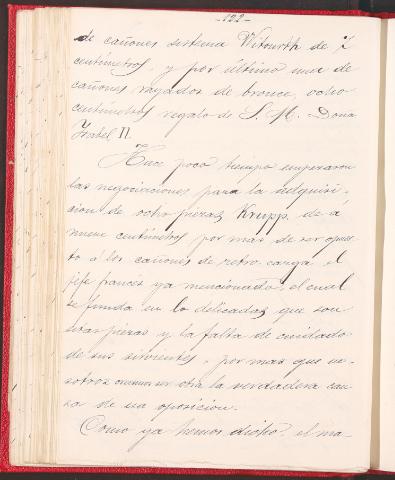 -122-
de cañones sistema Witourth de 7
centímetros y por último una de
cañones rayados de bronce, ocho
centímetros regalo de S. M. Dona
Isabel II.
Hace poco tiempo empezaron
las negociaciones para la adquisi-
cion de ocho piezas Krupp de á
nueve centímetros por mas de ser opues-
to á los cañones de retro-carga el
jefe francés ya mencionado, el cual
se funda en lo delicadas que son
estas piezas y la falta de cuidado
de sus sirvientes, por mas que no-
sotros en otra la verdadera cau-
sa de su oposicion.
Como ya hemos dicho, el ma-